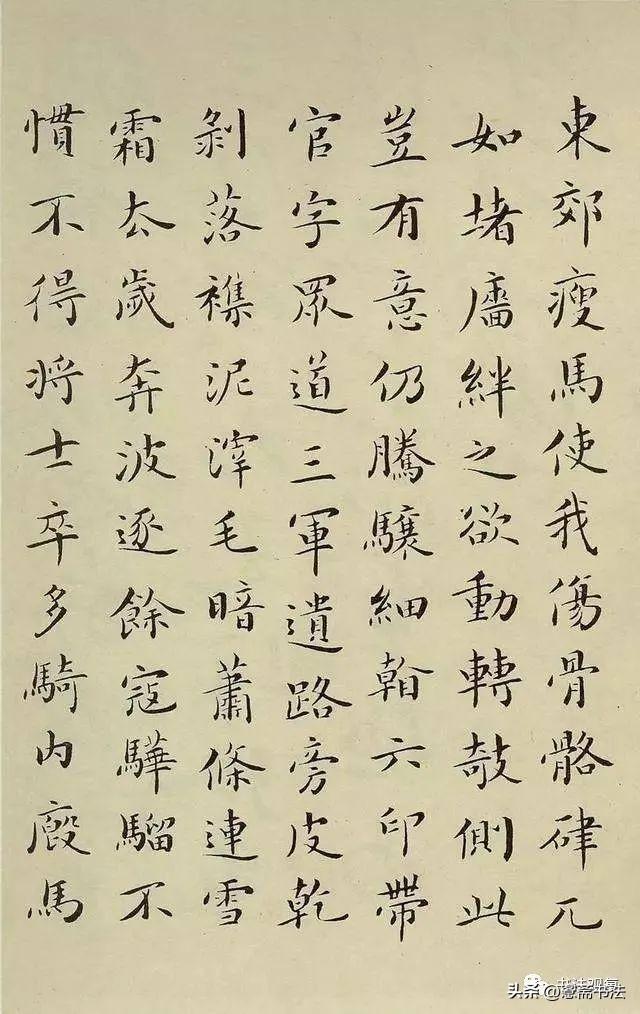 東郊瘦馬使我傷骨骼硉兀
如堵廧絆之欲動轉敧側此
豈有意仍騰驤細看六印帶
官字眾道三軍遺路旁皮乾
剝落襍泥滓毛暗蕭條連雪
霜去歲奔波逐餘寇驊騮不
慣不得將士卒多騎內廄馬
头条 @慭斋书法